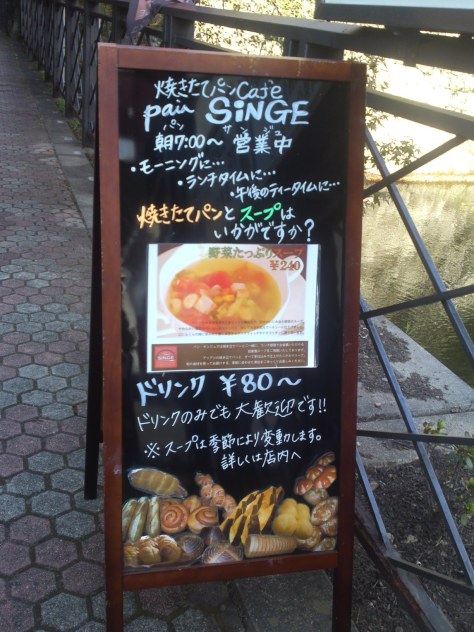 焼きたてパンCafe
pain SiNGE
パン サンジュ
朝7:00～ 営業中
・モーニングに…
・ランチタイムに…
・午後のティータイムに…
焼きたてパンと スープは
いかがですか？
野菜たっぷりスープ
¥240
SINGE
ドリンク ¥80～
ドリンクのみでも 大歓迎です!!
※ スープは季節により変動します。
詳しくは店内へ